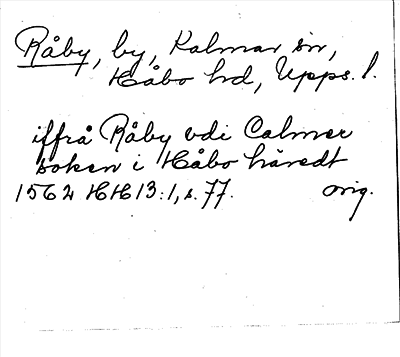 Råby, by, Kalmar sn,
Håbo hd, Upps. l.
iffrå Råby vdi Calmar
soken i Håbo häredt
1562 HH 13:1, s. 77. orig.